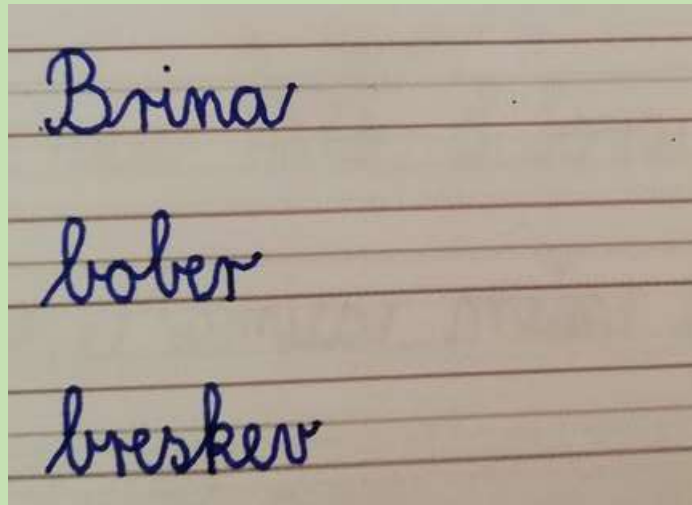 Brina
bober
breskev